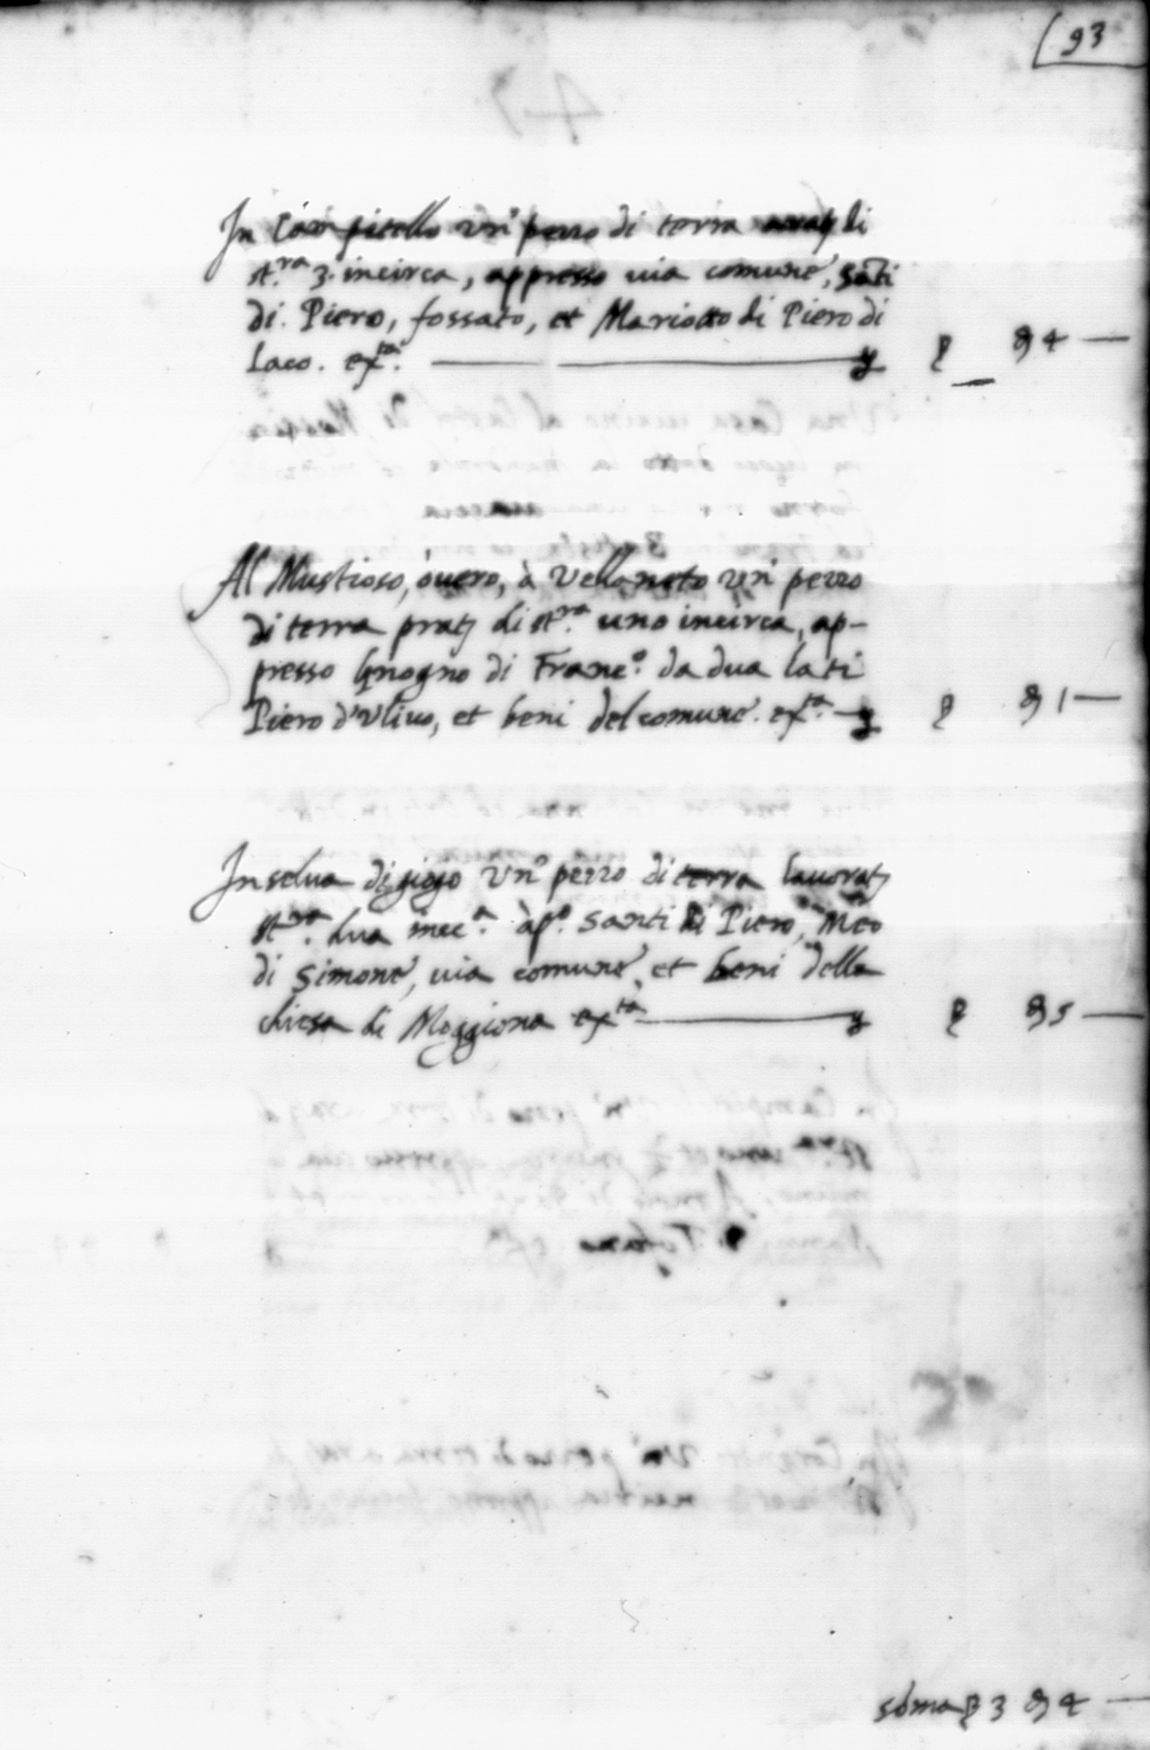 93
In Campitello un pezzo di terra arat di
st.ra 3. incirca, appresso via comune, Sati
di Piero, fossato, et Mariotto di Piero di
Iaco. ex.ta
94
Al Mustioso, overo, à Vellaneto un pezzo
di terra prat di st.ra uno incirca, ap-
presso di Franc.o da dua lati
Piero d'Ulivo, et beni del comune. ex.ta
91
In selva di giogo un pezzo di terra lavorat
st.ra dua inc.a ap.o Santi di Piero, Meo
di Simone, via comune, et beni della
chiesa di Moggiona ex.ta
95
soma 3 94